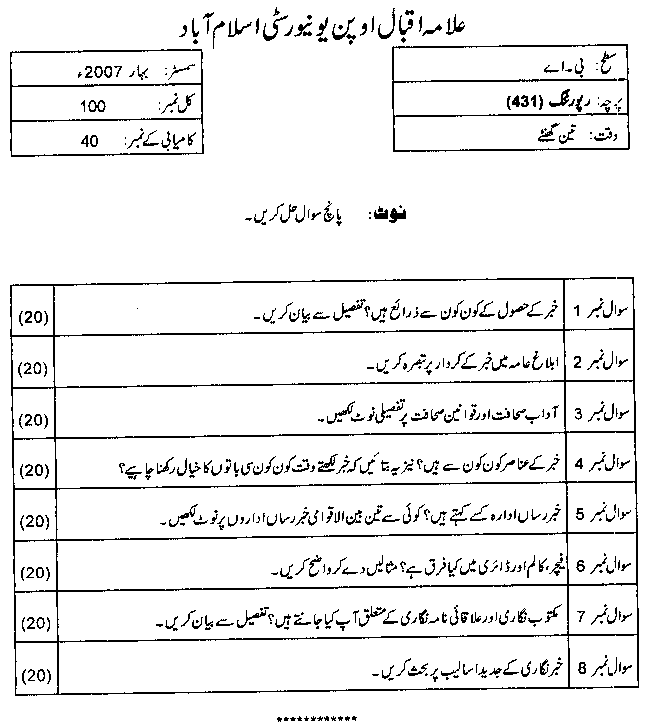 علامہ اقبال اوپن یونیورسٹی اسلام آباد
سطح: بی۔اے
پرچہ: رپورٹنگ (431)
وقت: تین گھنٹے
سمسٹر: بہار 2007ء
کل نمبر: 100
کامیابی کے نمبر: 40
نوٹ: پانچ سوال حل کریں۔
سوال نمبر 1 خبر کے حصول کے کون کون سے ذرائع ہیں؟ تفصیل سے بیان کریں۔ (20)
سوال نمبر 2 ابلاغ عامہ میں خبر کے کردار پر تبصرہ کریں۔ (20)
سوال نمبر 3 آداب صحافت اور قوانین صحافت پر تفصیلی نوٹ لکھیں۔ (20)
سوال نمبر 4 خبر کے عناصر کون کون سے ہیں؟ نیز یہ بتائیں کہ خبر لکھتے وقت کون کون سی باتوں کا خیال رکھنا چاہیے؟ (20)
سوال نمبر 5 خبر رساں ادارہ کسے کہتے ہیں؟ کوئی سے تین بین الاقوامی خبر رساں اداروں پر نوٹ لکھیں۔ (20)
سوال نمبر 6 فیچر، کالم اور ڈائری میں کیا فرق ہے؟ مثالیں دے کر واضح کریں۔ (20)
سوال نمبر 7 مکتوب نگاری اور علاقائی نامہ نگاری کے متعلق آپ کیا جانتے ہیں؟ تفصیل سے بیان کریں۔ (20)
سوال نمبر 8 خبر نگاری کے جدید اسالیب پر بحث کریں۔ (20)
************